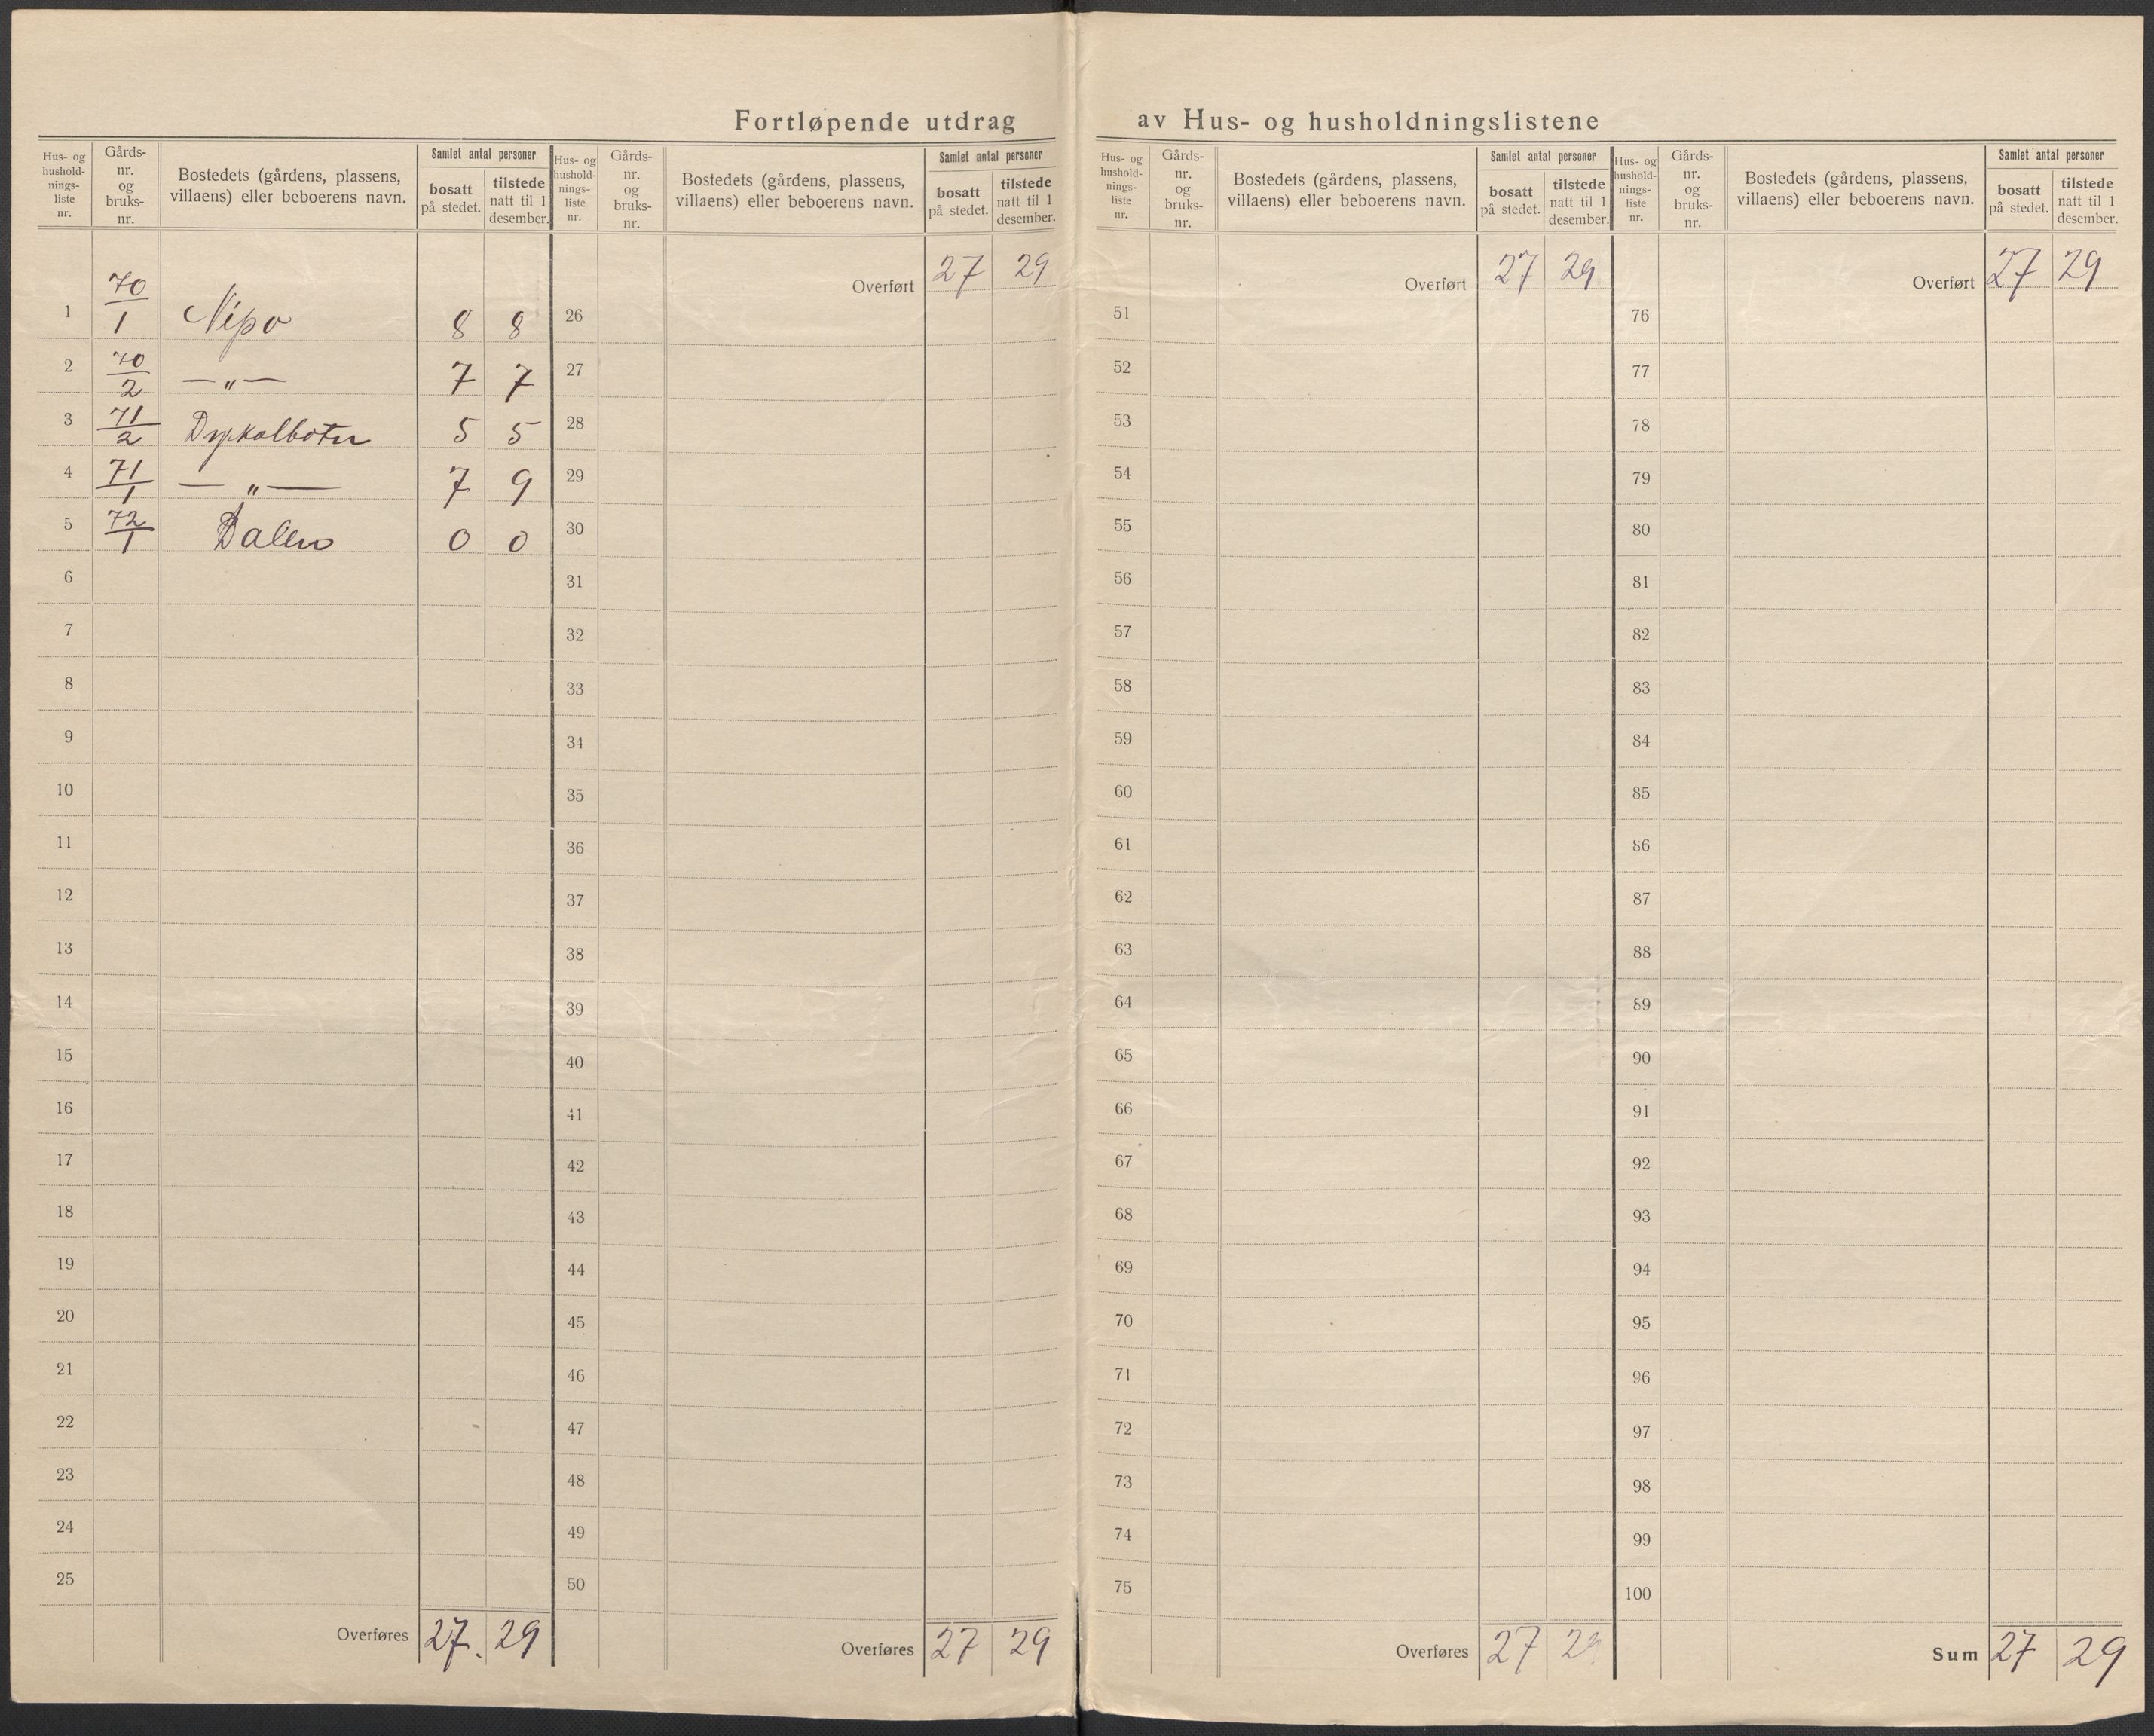 Fortløpende utdrag av Hus- og husholdningslistene
Hus- og hushold-nings-liste nr. Gårds-nr. og bruks-nr. Bostedets (gårdens, plassens, villaens) eller beboerens navn. Samlet antal personer bosatt på stedet. tilstede natt til 1 desember.
1 70/1 Nipo 8 8
2 70/2 —„— 7 7
3 71/2 5 5
4 71/1 —„— 7 9
5 72/1 Dalen 0 0
6
7
8
9
10
11
12
13
14
15
16
17
18
19
20
21
22
23
24
25
Overføres 27. 29
Hus- og hushold-nings-liste nr. Gårds-nr. og bruks-nr. Bostedets (gårdens, plassens, villaens) eller beboerens navn. Samlet antal personer bosatt på stedet. tilstede natt til 1 desember.
Overført 27 29
26
27
28
29
30
31
32
33
34
35
36
37
38
39
40
41
42
43
44
45
46
47
48
49
50
Overføres 27 29
Hus- og hushold-nings-liste nr. Gårds-nr. og bruks-nr. Bostedets (gårdens, plassens, villaens) eller beboerens navn. Samlet antal personer bosatt på stedet. tilstede natt til 1 desember.
Overført 27 29
51
52
53
54
55
56
57
58
59
60
61
62
63
64
65
66
67
68
69
70
71
72
73
74
75
Overføres 27 29
Hus- og hushold-nings-liste nr. Gårds-nr. og bruks-nr. Bostedets (gårdens, plassens, villaens) eller beboerens navn. Samlet antal personer bosatt på stedet. tilstede natt til 1 desember.
Overført 27 29
76
77
78
79
80
81
82
83
84
85
86
87
88
89
90
91
92
93
94
95
96
97
98
99
100
Sum 27 29